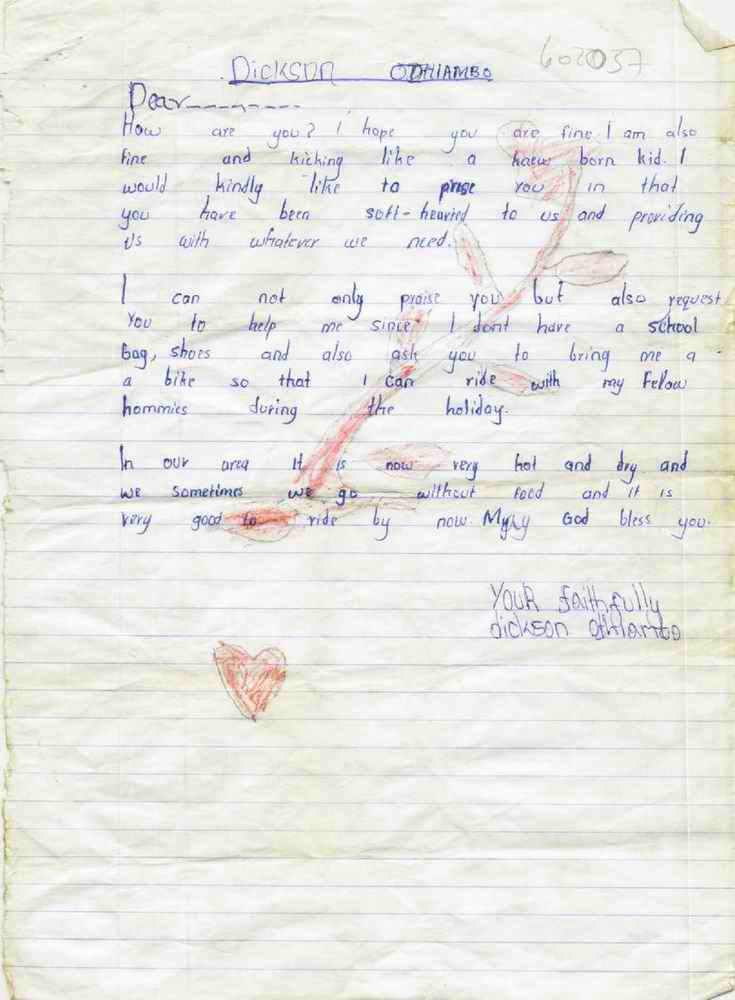 Dickson ODHIAMBO 602037
Dear---------
How are you? I hope you are fine. I am also
fine and kicking like a knew born kid. I
would kindly like to prise you in that
you have been soft-hearted to us and providing
us with whatever we need.
I can not only praise you but also request
You to help me since I dont have a school
bag, shoes and also ask you to bring me a
a bike so that I can ride with my Fellow
hommies during the holiday.
In our area it is now very hot and dry and
we sometimes we go without food and it is
very good to ride by now. May God bless you.
YouR faithfully
dickson othiambo